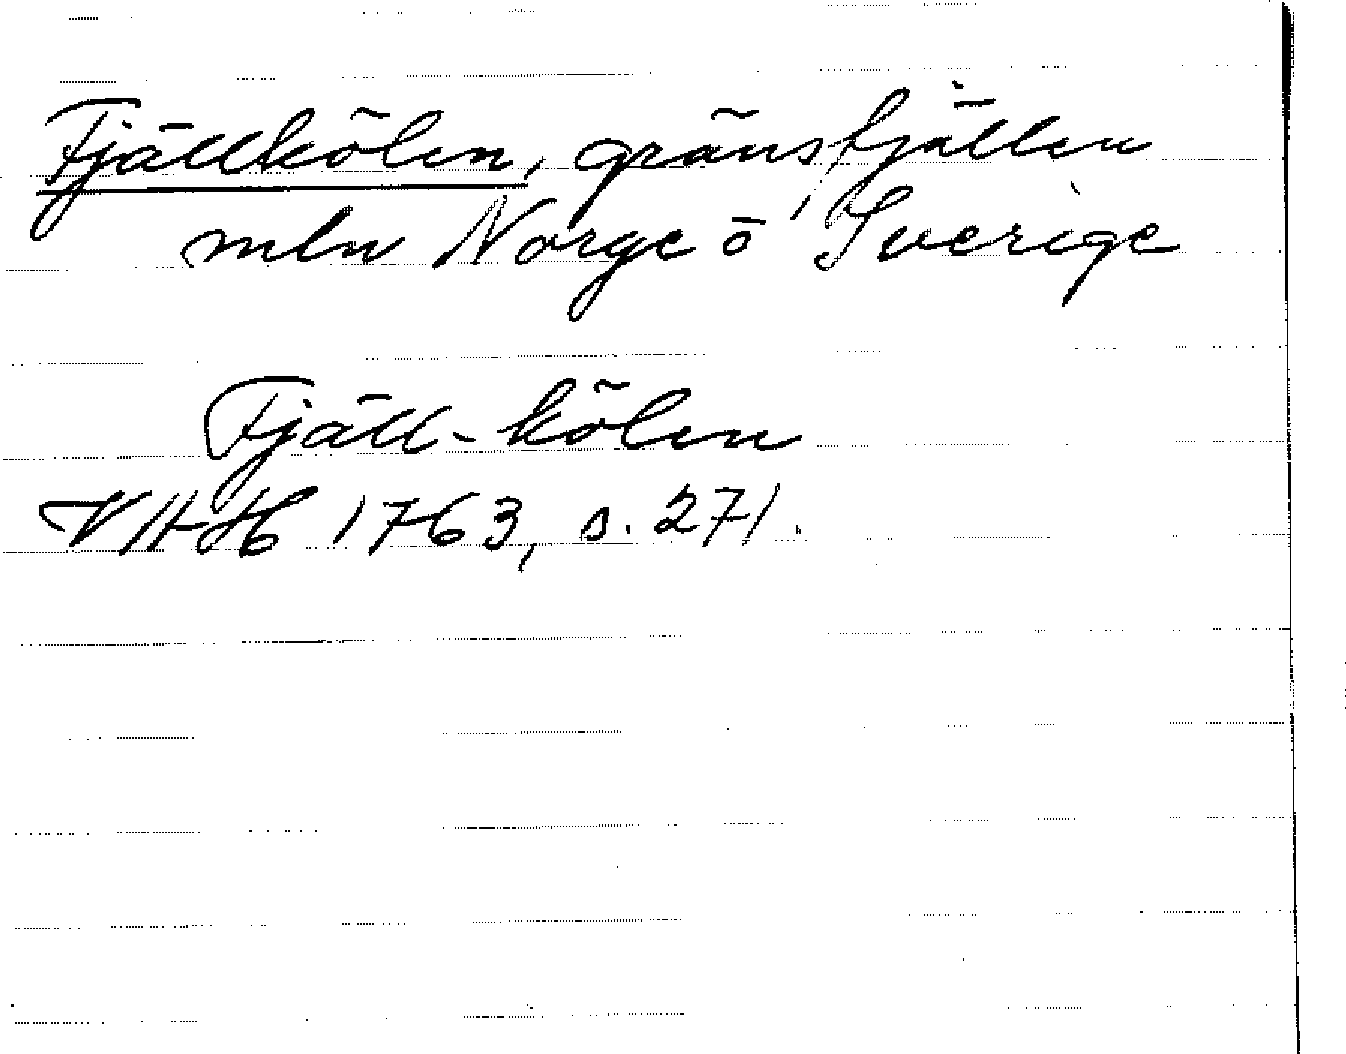 Fjällkölen, gränsfjällen
mln Norge o Sverige
Fjäll-kölen
VAH 1763, s. 271.